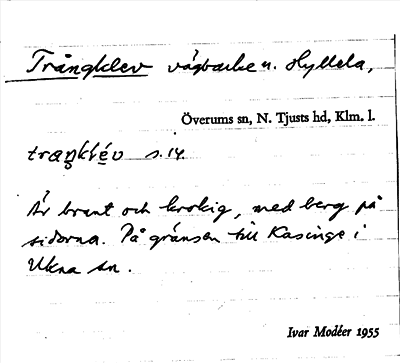 Trångklev vägbacke n. Hyllela,
Överums sn, N. Tjusts hd, Klm. l.
s. 14.
Är brant och krokig, med berg på
sidorna. På gränsen till Kasinge i
Ukna sn.
Ivar Modéer 1955